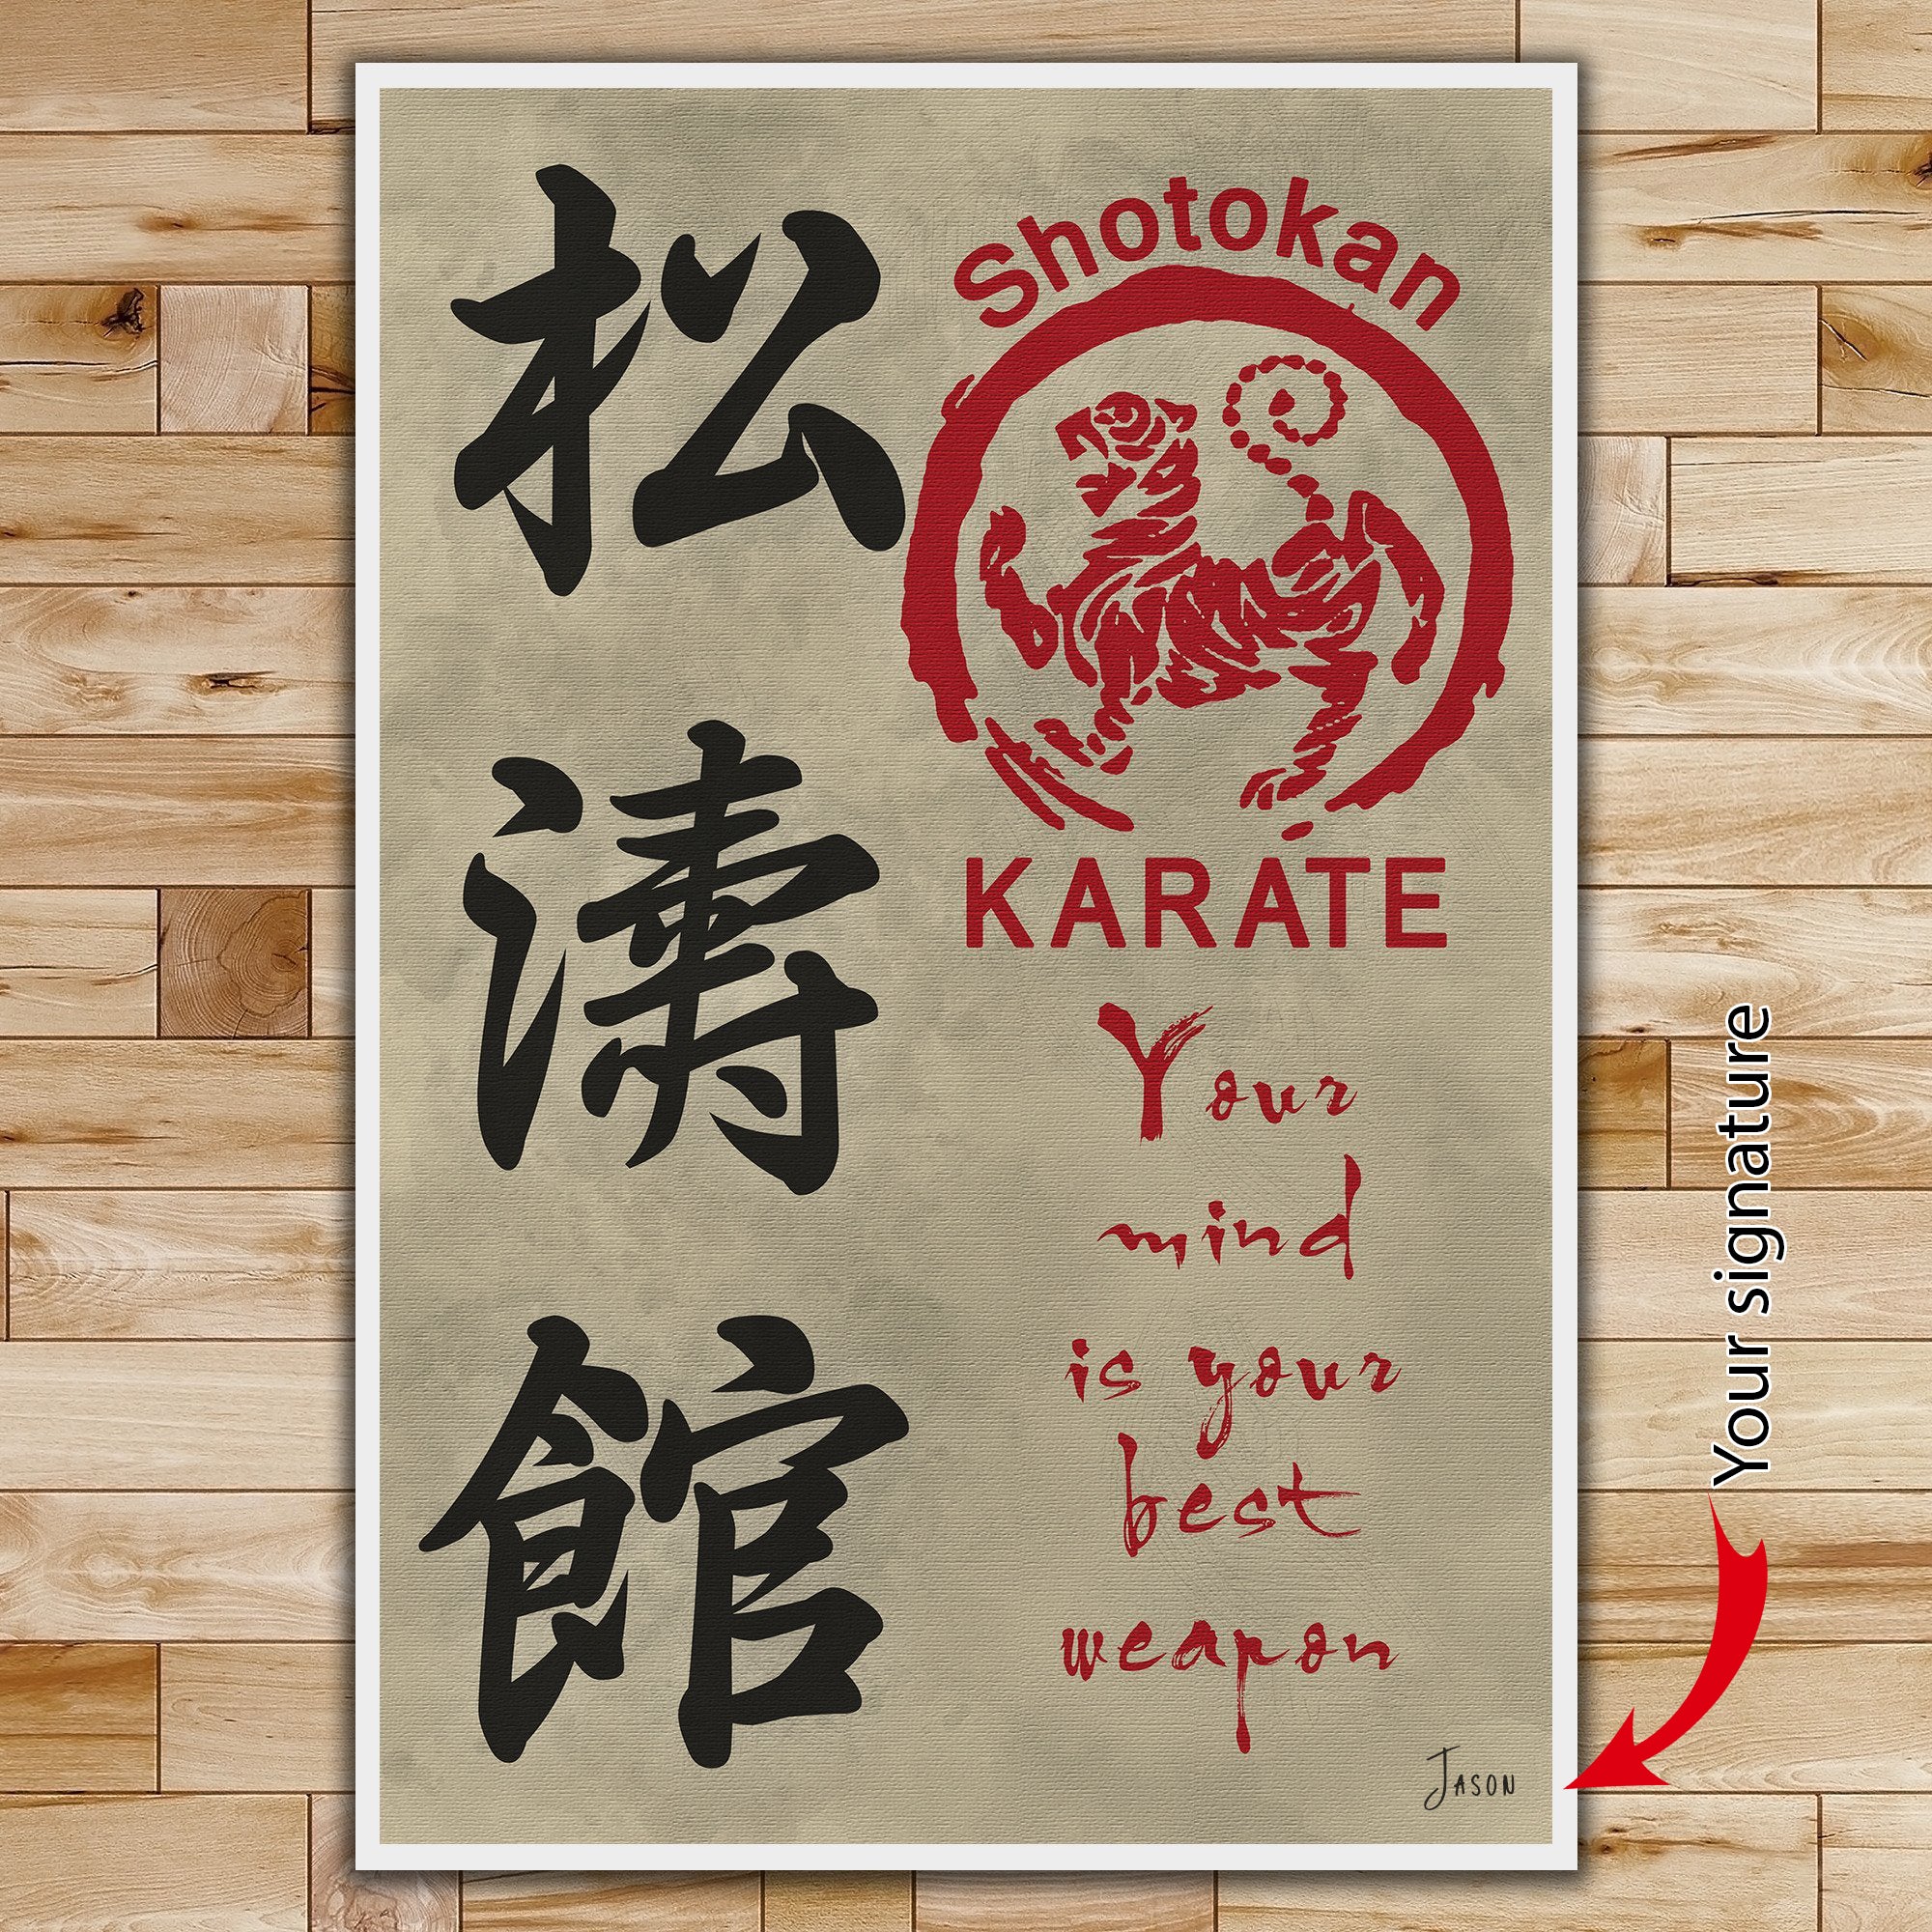 松
濤
館
Shotokan
KARATE
Your
mind
is your
best
weapon
JASON
Your signature